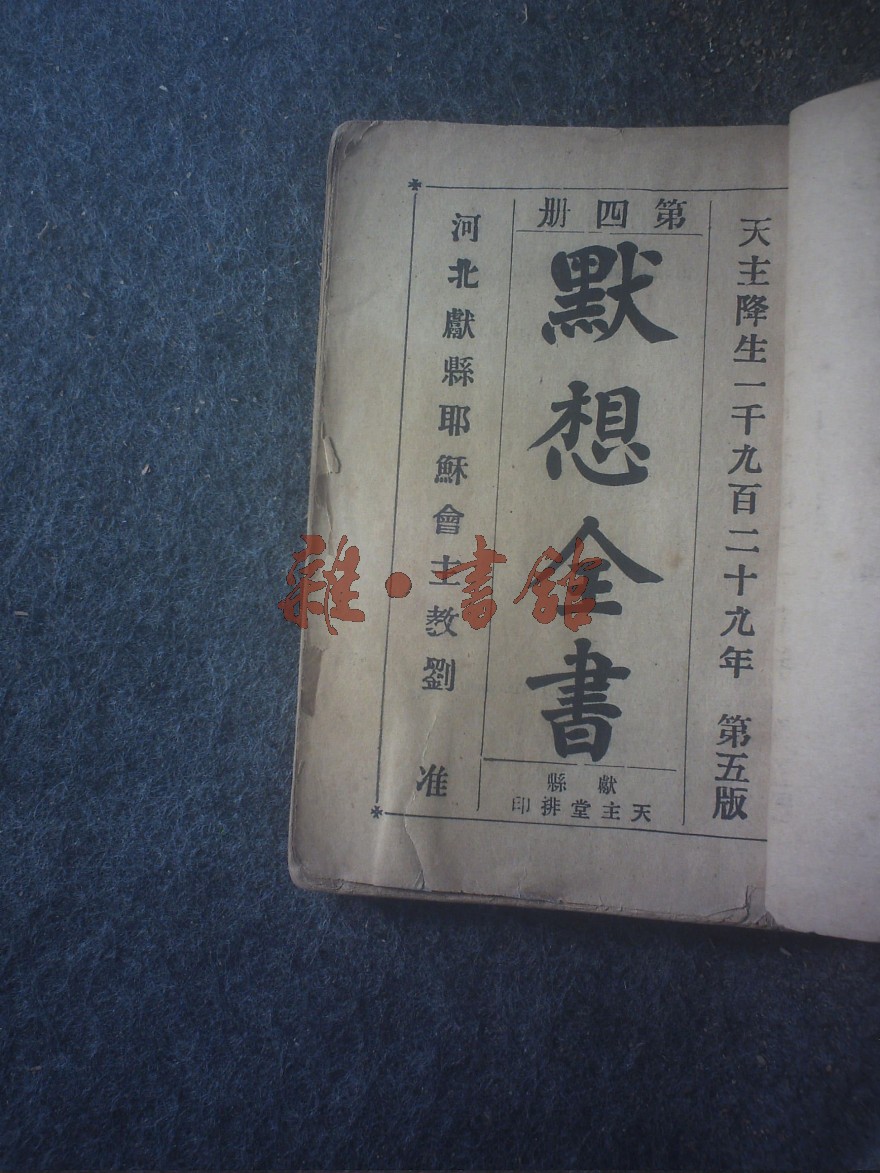 天主降生一千九百二十九年 第五版
第四册
默想全書
獻縣
天主堂排印
河北獻縣耶穌會主教劉 准
雜·書館